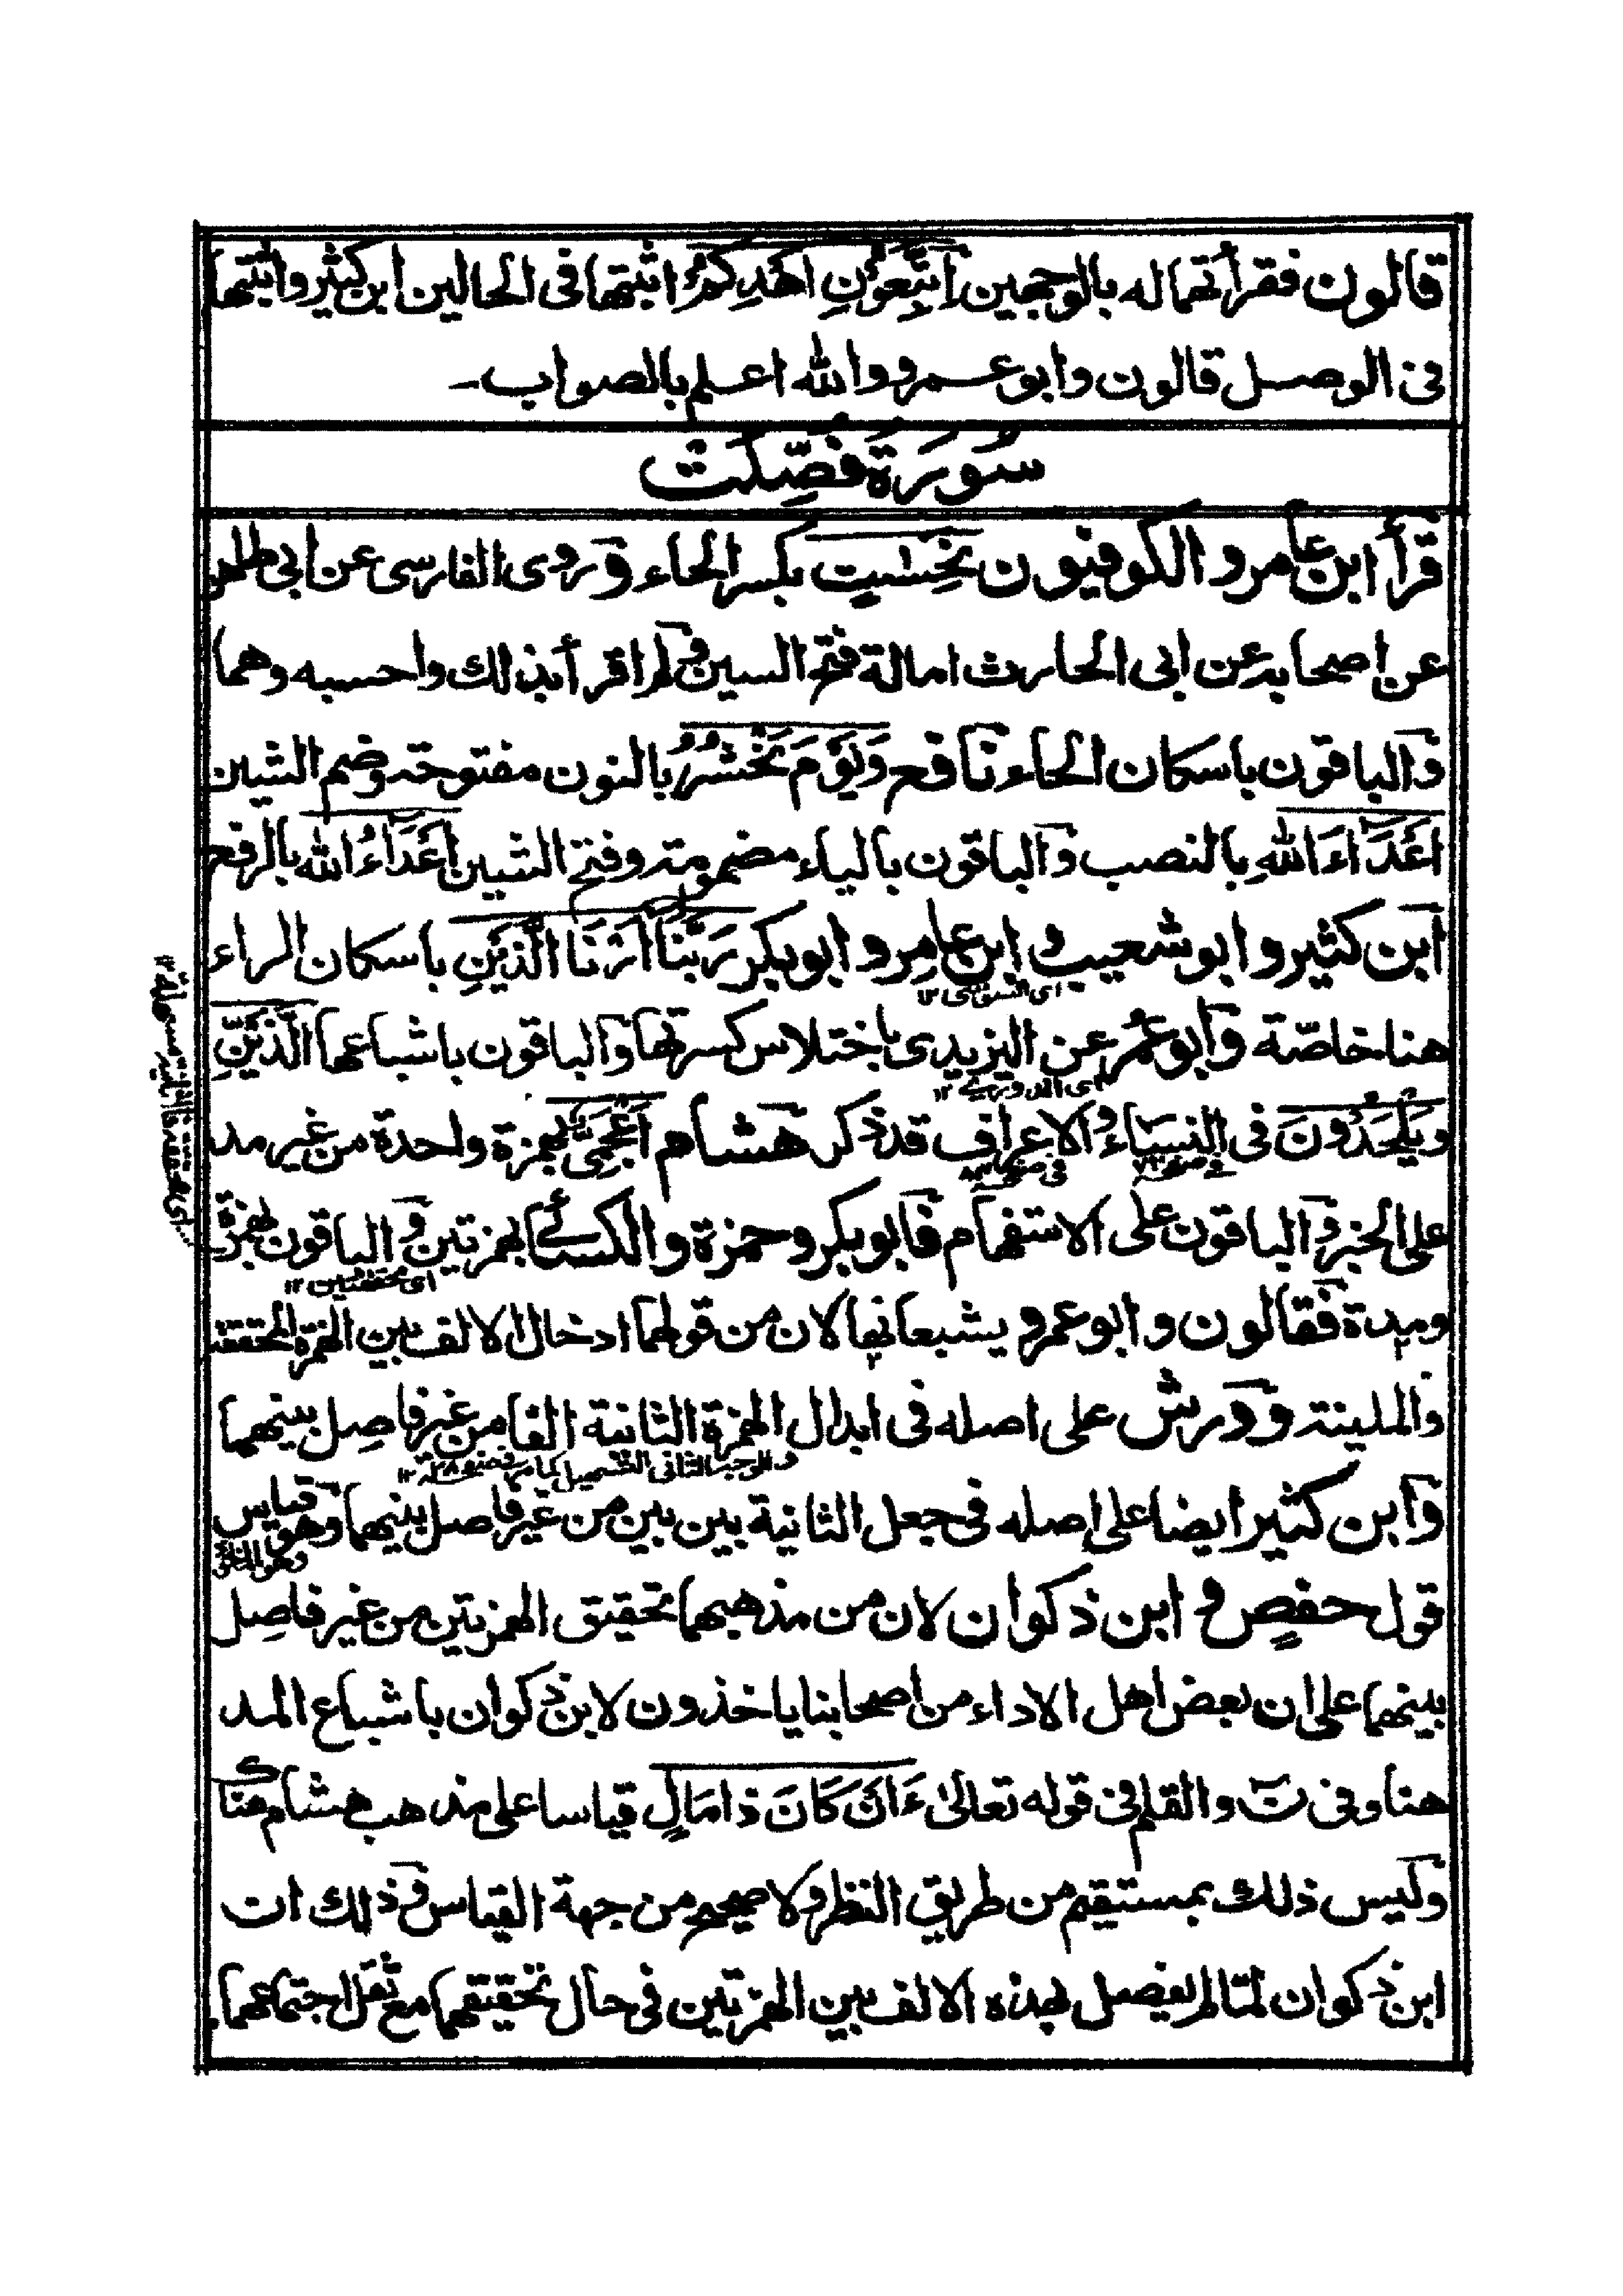 قالون فقرأتهما له بالوجهين اتَّبِعُوْنِ اَهْدِكُمْ اثبتها في الحالين ابن كثير واثبتها
في الوصل قالون وابو عمرو والله اعلم بالصواب۔
سُوْرَةُ فُصِّلَتْ
قرأ ابن عامر و الكوفيون نَّحِسَاتٍ بكسر الحاء وروى الفارسى عن ابى طاهر
عن اصحابه عن ابى الحارث امالة فتح السين ولم اقرأ بذلك واحسبه وهما
والباقون باسكان الحاء نافع وَيَوْمَ نَحْشُرُ بالنون مفتوحة وضم الشين
اَعْدَاءَ اللهِ بالنصب والباقون بالياء مضمومة وفتح الشين اَعْدَاءُ الله بالرفع
ابن كثير و ابو شعيب و ابن عامر و ابو بكر رَبَّنَا اَرْنَا الَّذَيْنِ باسكان الراء
اى السوسى ١٢
هنا خاصّة وابو عمر عن اليزيدى باختلاس كسرتها والباقون باشباعها الَّذَيْنِ
ويَلْحَدُوْنَ فى النساء والاعراف قد ذكر هشام اَعْجَمِىٌّ بهمزة واحدة من غير مد
على الخبر والباقون على الاستفهام فابو بكر وحمزة والكسائى بهمزتين والباقون بهمزة
اى محققتين ١٢
ومدة فقالون و ابو عمرو يشبعانها لان من قولهما ادخال الالف بين الهمزة المحققة
والملينة وورش على اصله فى ابدال الهمزة الثانية الفا من غير فاصل بينهما
وابن كثير ايضا على اصله فى جعل الثانية بين بين من غير فاصل بينهما وهو قياس
قول حفص و ابن ذكوان لان من مذهبهما تحقيق الهمزتين من غير فاصل
بينهما على ان بعض اهل الاداء من اصحابنا ياخذون لابن ذكوان باشباع المد
هنا وفى نٓ والقلم فى قوله تعالىٰ ءَاَنْ كَانَ ذَا مَالٍ قياسا على مذهب هشام هنا
وليس ذلك بمستقيم من طريق النظر ولا صحيح من جهة القياس وذلك ان
ابن ذكوان لمّا لم يفصل بهذه الالف بين الهمزتين فى حال تحقيقهما مع ثقل اجتماعهما